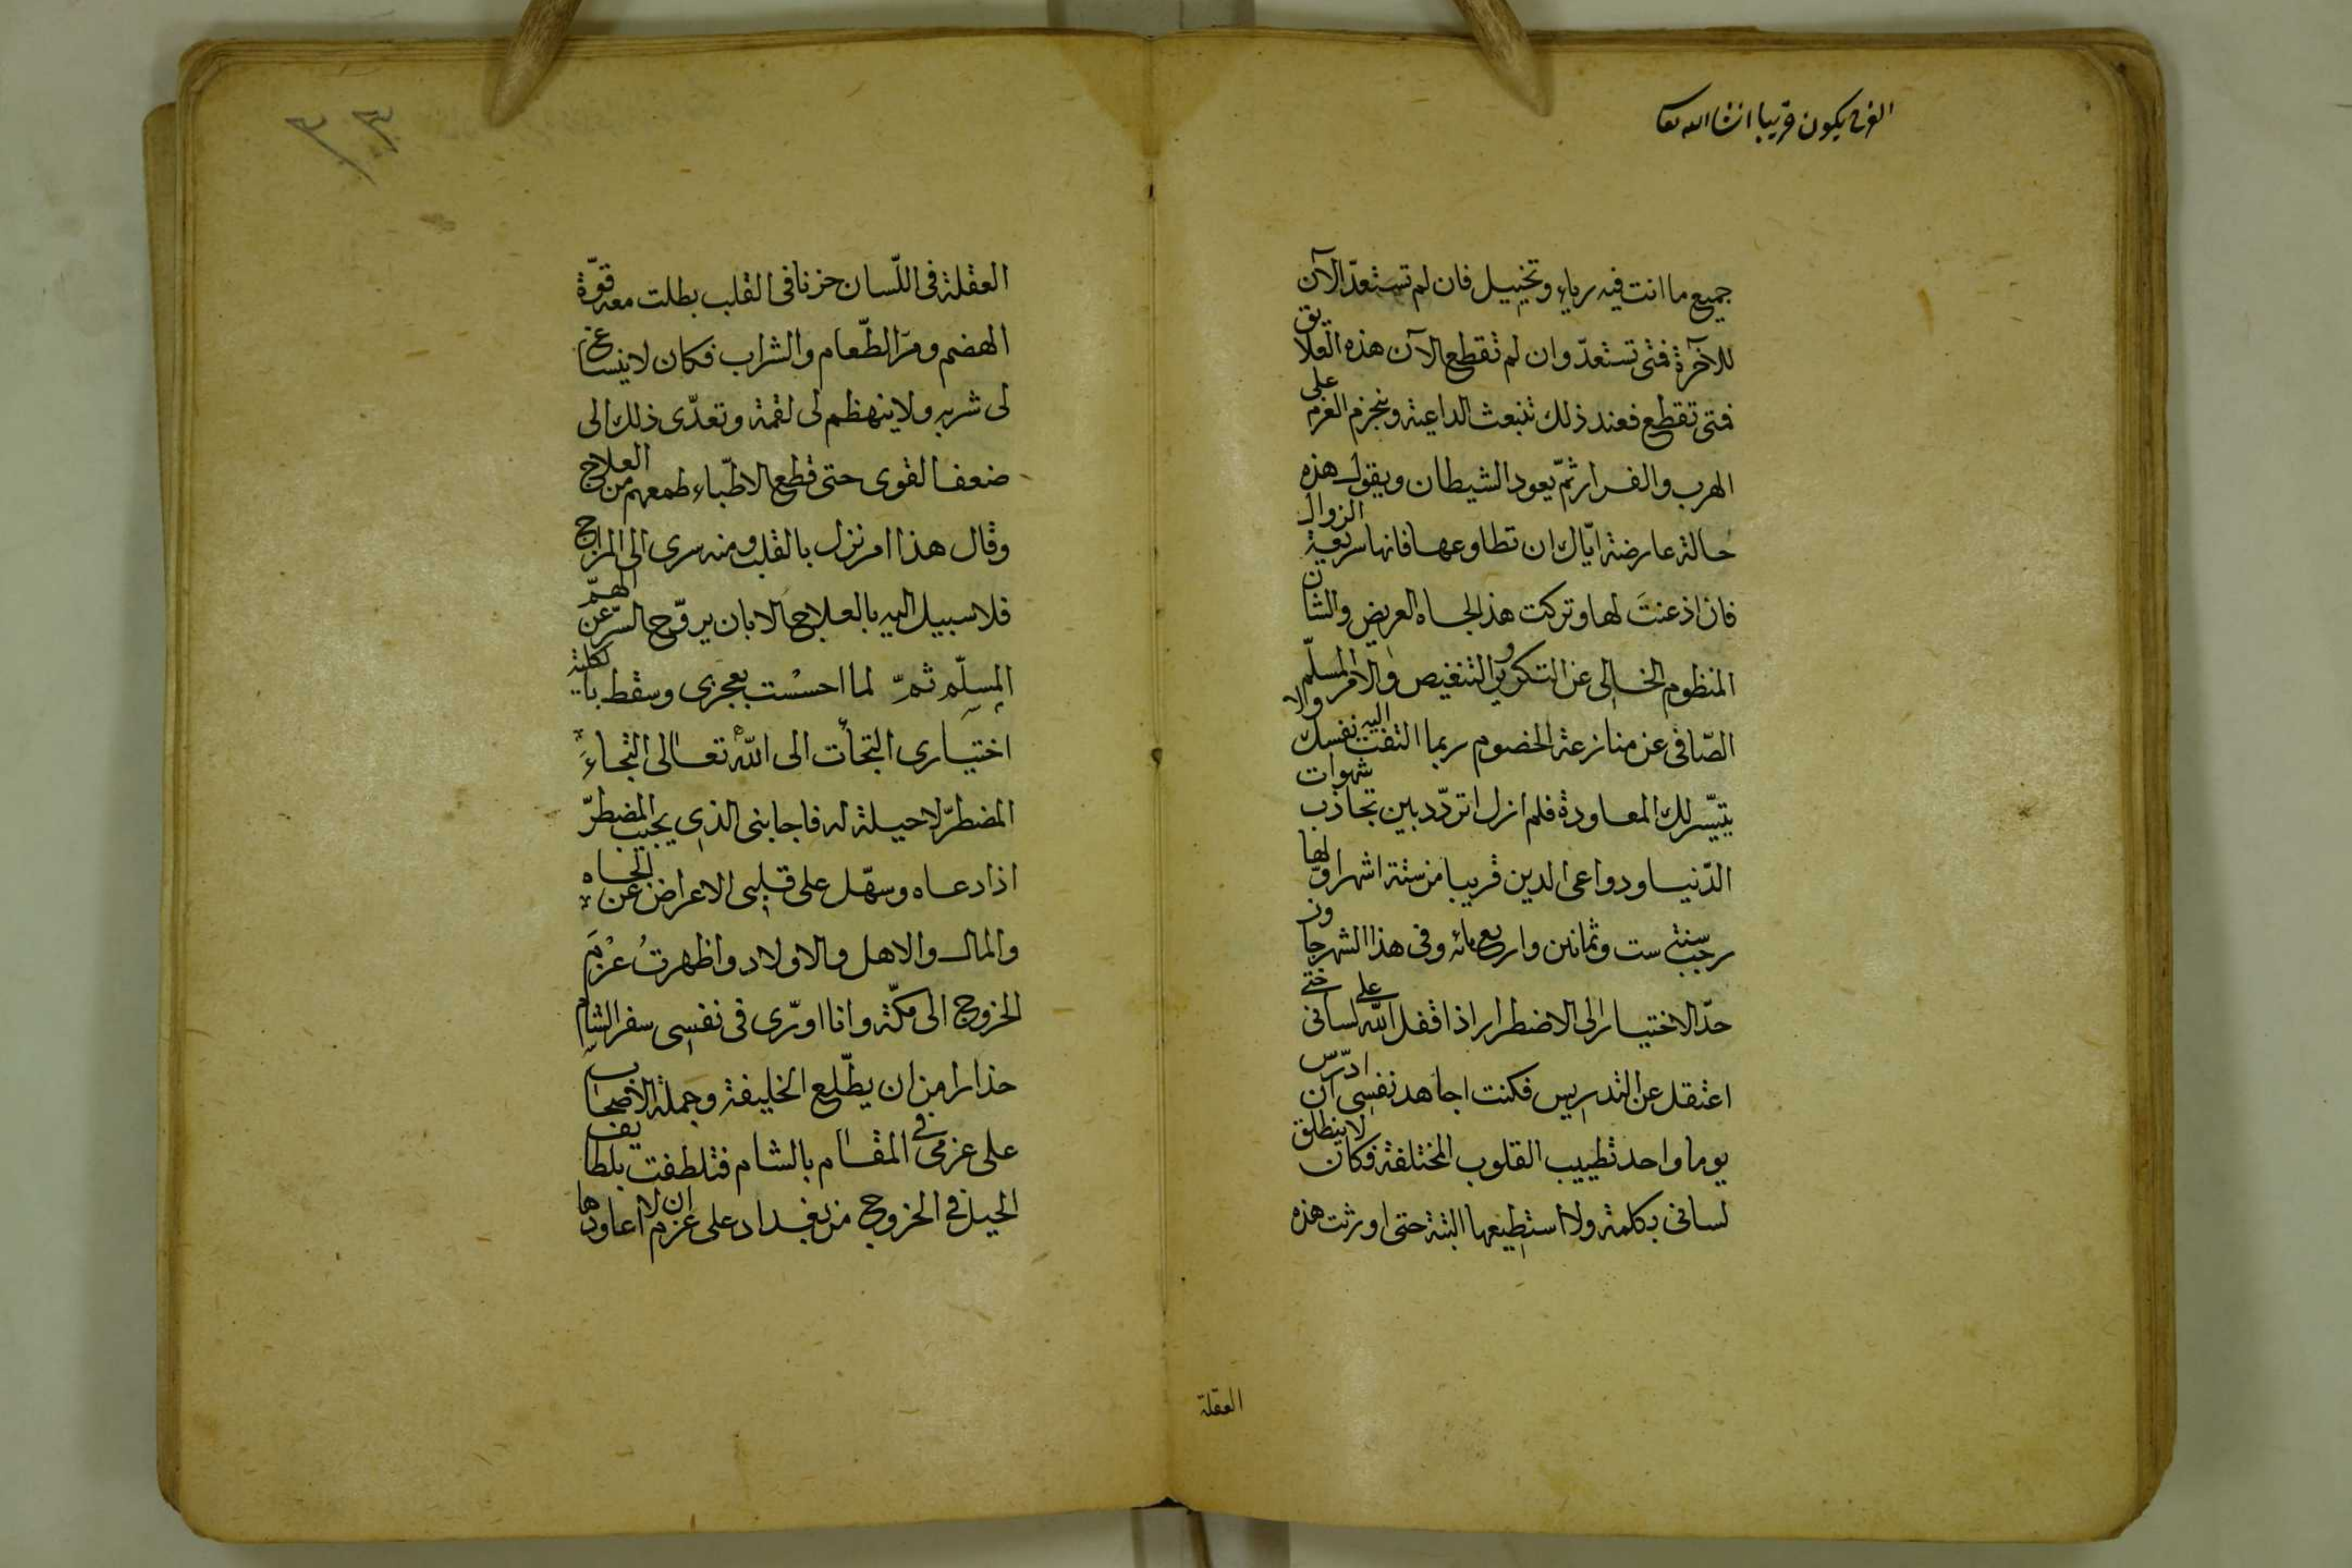 الفرح يكون قريبا انشا الله تعا
جميع ما انت فيه رياء وتخييل فان لم تستعدّ الآن
للآخرة فمتى تستعدّ وان لم تقطع الآن هذه العلايق
فمتى تقطع فعند ذلك تنبعث الداعية وينجزم العزم على
الهرب والفرار ثمّ يعود الشيطان ويقول هذه
حالة عارضة ايّاك ان تطاوعها فانها سريعة الزوال
فان اذعنتَ لها وتركت هذا لجاه العريض والشان
المنظوم الخالى عن التكدير والتنغيص والامر المسلّم
الصّافى عن منازعة الخصوم ربما التفت اليه نفسك ولا
يتيسّر لك المعاودة فلم ازل اتردّد بين تجاذب شهوات
الدّنيا ودواعى الدين قريبا من ستة اشهر اوّلها
رجب سنة ست وثمانين واربع مائه وفى هذا الشهر جاوز
حدّ الاختيار الى الاضطرار اذ اقفل الله على لسانى حتى
اعتقل عن التدريس فكنت اجاهد نفسى ان ادرّس
يوما واحد تطييب القلوب المختلفة فكان لا ينطلق
لسانى بكلمة ولا استطيعها البتة حتى اورثت هذه
العقلة
٣٠٣
العقلة فى اللّسان حزنا فى القلب بطلت معه قوّة
الهضم ومرّا الطّعام والشراب فكان لا ينساغ
لى شربه ولا ينهظم لى لقمة وتعدّى ذلك الى
ضعف القوى حتى قطع الاطبّاء طمعهم من العلاج
وقال هذا امر نزل بالقلب ومنه سرى الى المزاج
فلا سبيل اليه بالعلاج الا بان يروّح السّر عن الهمّ
المسلّم ثمّ لما احسست بعجزى وسقط بالكلية
اختيارى التجأت الى الله تعالى التجاء
المضطرّ لا حيلة له فاجابنى الذى يجيب المضطرّ
اذا دعاه وسهّل على قلبى الاعراض عن الجاه
والمال والاهل والاولاد واظهرتُ عزم
الخروج الى مكّة وانا اورّى فى نفسى سفر الشام
حذارا من ان يطّلع الخليفة وجملة الاصحاب
على عزمى فى المقام بالشام فتلطفت بلطايف
الحيل فى الخروج من بغداد على عزم ان لا اعاودها